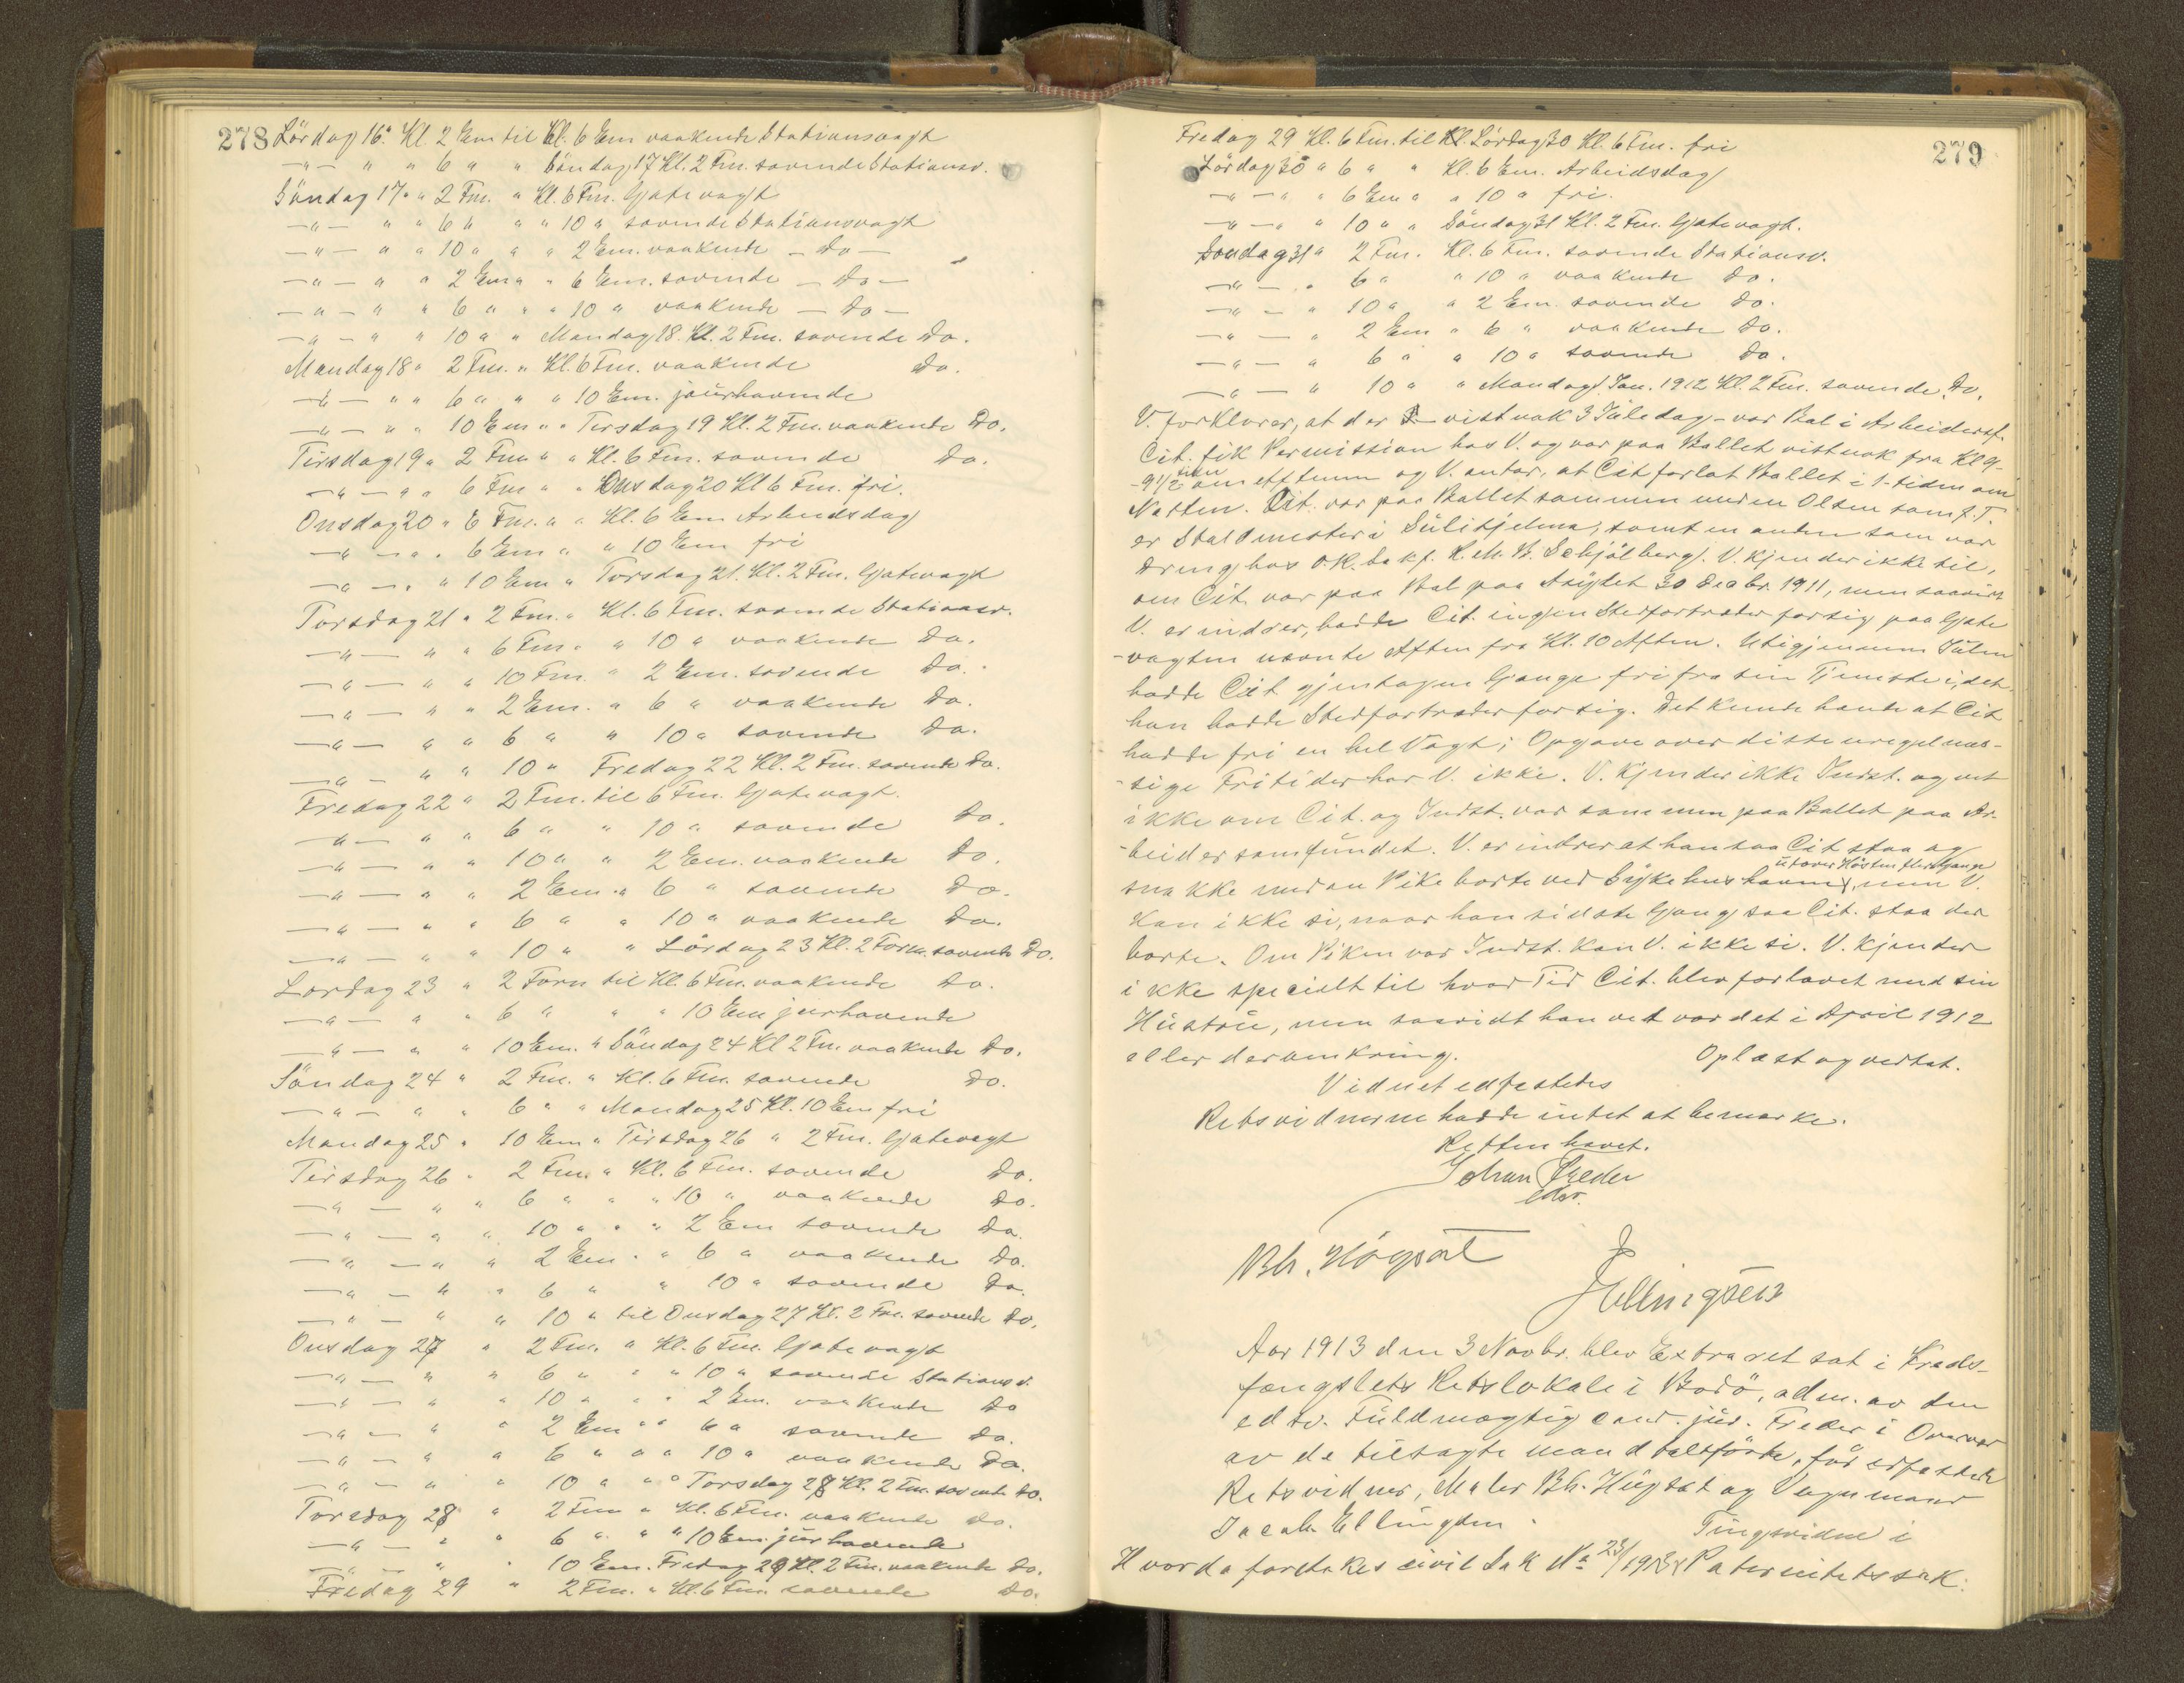 278
Lördag 16. Kl. 2 Em til Kl. 6 Em vaakende Stationsvagt
—"— " " 6 " " Söndag 17 Kl. 2 Fm. sovende Stationsv.
Söndag 17 " " 2 Fm. " Kl. 6 Fm. Gatevagt
—"— " " 6 " " " 10 " sovende Stationsvagt
—"— " " 10 " " " 2 Em. vaakende — Do —
—"— " " 2 Em " " 6 Em. sovende — Do —
—"— " " 6 " " " 10 " vaakende — Do —
—"— " " 10 " " Mandag 18. Kl. 2 Fm. sovende Do.
Mandag 18 " 2 Fm. " Kl. 6 Fm. vaakende Do.
—"— " " 6 " " " 10 Em. jourhavende
—"— " " 10 Em " " Tirsdag 19 Kl. 2 Fm. vaakende Do.
Tirsdag 19 " 2 Fm " " Kl. 6 Fm. sovende Do.
—"— " " 6 Fm " " Onsdag 20 Kl 6 Fm. fri.
Onsdag 20 " 6 Fm. " " Kl. 6 Em Arbeidsdag
—"— " " 6 Em " " 10 Em fri
—"— " " 10 Em " Torsdag 21. Kl. 2 Fm. Gatevagt
Torsdag 21 " 2 Fm. " Kl. 6 Fm. sovende Stationsv.
—"— " " 6 Fm. " " 10 " vaakende Do.
—"— " " 10 Fm. " 2 Em. sovende Do.
—"— " " 2 Em. " 6 " vaakende Do.
—"— " " 6 " " 10 " sovende Do.
—"— " " 10 " Fredag 22 Kl. 2 Fm. sovende Do.
Fredag 22 " 2 Fm. til 6 Fm. Gatevagt.
—"— " " 6 " " 10 " sovende Do.
—"— " " 10 " " 2 Em. vaakende Do.
—"— " " 2 Em. " 6 " sovende Do.
—"— " " 6 " " 10 " vaakende Do.
—"— " " 10 " " Lördag 23 Kl. 2 Form. sovende Do.
Lördag 23 " 2 Form til Kl. 6 Fm. vaakende Do.
—"— " " 6 " " " 10 Em jourhavende
—"— " " 10 Em. " Söndag 24 Kl 2 Fm. vaakende Do.
Söndag 24 " 2 Fm. " Kl. 6 Fm. sovende Do.
—"— " " 6 " " Mandag 25 Kl. 10 Em fri
Mandag 25 " 10 Em " Tirsdag 26 " 2 Fm. Gatevagt
Tirsdag 26 " 2 Fm. " Kl. 6 Fm. sovende Do.
—"— " " 6 " " " 10 " vaakende Do.
—"— " " 10 " " " 2 Em sovende Do.
—"— " " 2 Em. " " 6 " vaakende Do.
—"— " " 6 " " 10 " sovende Do.
—"— " " 10 " til Onsdag 27 Kl. 2 Fm. sovende Do.
Onsdag 27 " 2 Fm. " Kl. 6 Fm. Gatevagt
—"— " " 6 " " " 10 " sovende Stationsv.
—"— " " 10 " " " 2 Em. vaakende Do
—"— " " 2 Em " " 6 " sovende Do.
—"— " " 6 " " " 10 " vaakende Do.
—"— " " 10 " " " Torsdag 28 Kl. 2 Fm. sovende Do.
Torsdag 28 " 2 Fm " Kl. 6 Fm. vaakende Do.
—"— " " 6 " " " 10 Em. jourhavende
—"— " " 10 Em. Fredag 29 Kl. 2 Fm. vaakende Do.
Fredag 29 " 2 Fm. " Kl. 6 Fm. sovende Do.
279
Fredag 29 Kl. 6 Fm. til Kl. Lördag 30 Kl. 6 Fm. fri
Lördag 30 " 6 " " Kl. 6 Em. Arbeidsdag
—"— " " 6 Em " " 10 " fri.
—"— " " 10 " " Söndag 31 Kl. 2 Fm. Gatevagt.
Söndag 31 " 2 Fm. Kl. 6 Fm. sovende Stationsv.
—"— " 6 " " 10 " vaakende Do.
—"— " 10 " " 2 Em. sovende Do.
—"— " 2 Em " 6 " vaakende Do.
—"— " 6 " " 10 " sovende Do.
—"— " 10 " " Mandag 1 Jan. 1912 Kl. 2 Fm. sovende Do.
V. forklarer, at der — vistnok 3 Juledag — var Bal i Arbeidersf.
Cit. fik Permission hos V. og var paa Ballet vistnok fra Kl 9-
-9 1/2 tiden om efterm og V. antar, at Cit forlot Ballet i 1-tiden om
Natten. Cit. var paa Ballet sammen med en Olsen som f. T.
er Staldmester i Sulitjelma, samt en anden som var
Dreng hos OR. sakf. H. M. B. Schjölberg. V. kjender ikke til,
om Cit. var paa Bal paa Asylet 30 Decbr. 1911, men saavidt
V. erindrer, hadde Cit. ingen Stedfortræder for sig paa Gate
-vagten nævnte Aften fra Kl. 10 Aften. Utigjennem Julen
hadde Cit gjentagne Gange fri fra sin Tjeneste i, det
han hadde Stedfortræder for sig. Det kunde hænde at Cit
hadde fri en hel Vagt; Opgave over disse uregelmæs-
-sige Fritider har V. ikke. V. kjender ikke Indst. og vet
ikke om Cit. og Indst. var sammen paa Ballet paa Ar-
-beidersamfundet. V. erindrer at han saa Cit staa og
utover Hösten flere Gange
snakke med en Pike borte ved Sykehushavn, men V.
kan ikke si, naar han sidste Gang saa Cit. staa der
borte. Om Piken var Indst. kan V. ikke si. V. kjender
ikke specielt til hvad Tid Cit. blev forlovet med sin
Hustru, men saavidt han vet var det i April 1912
eller deromkring. Oplæst og vedtat.
Vidnet edfæstedes
Retsvidnerne hadde intet at bemærke.
Retten hævet.
Johan Freder
edsv.
Bh. Högset
J Ellingsen
Aar 1913 den 3 Novbr. blev Extraret sat i Kreds-
fængslets Retslokale i Bodö, adm. av den
edsv. Fuldmægtig cand. jur. Freder i Overvær
av de tilsagte mandtalsförte, för edfæstede
Retsvidner, Maler Bh. Högset og Vognmand
Jacob Ellingsen. Tingsvidne i
Hvorda foretokes civil Sak No 23/1913: Paternitetssak.